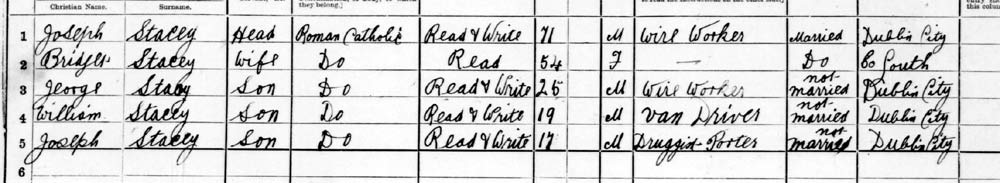 they belong.]
Christian Name. Surname.
1 Joseph Stacey Head Roman Catholic Read & Write 71 M Wire Worker Married Dublin City
2 Bridget Stacey Wife Do Read 54 F — Do Co Louth
3 George Stacy Son Do Read & Write 25 M Wire Worker not married Dublin City
4 William Stacey Son Do Read & Write 19 M Van Driver not married Dublin City
5 Joseph Stacey Son Do Read & Write 17 M Druggist Porter not married Dublin City
6